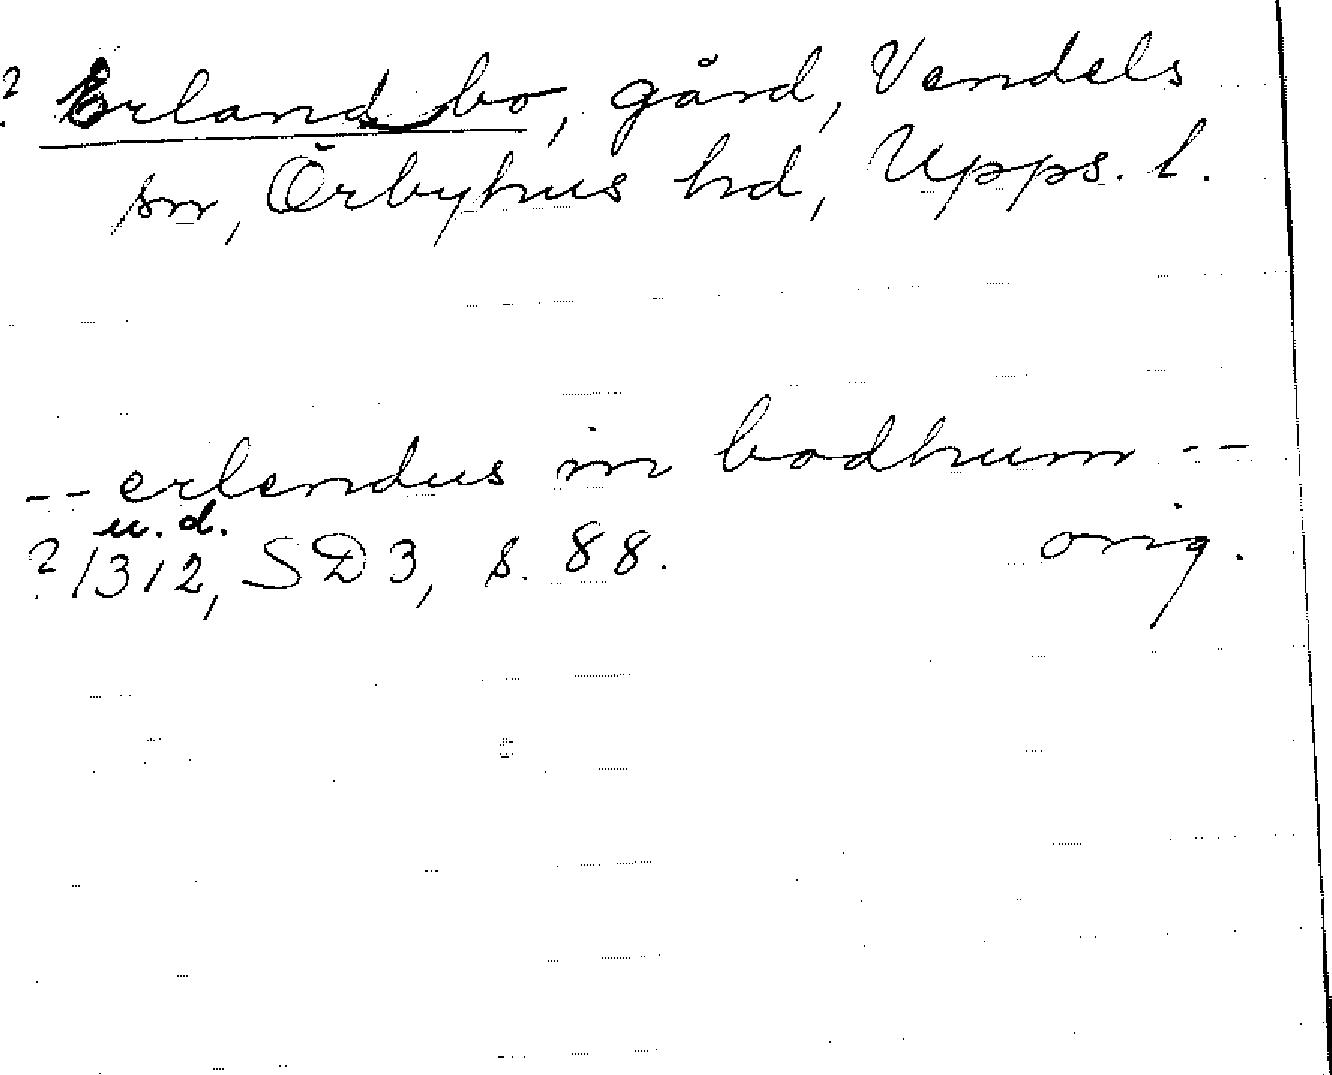 ? Erlandbo, gård, Vendels
sn, Örbyhus hd, Upps. l.
-- erlendus in bodhum --
u. d.
? 1312, SD 3, s. 88. orig.